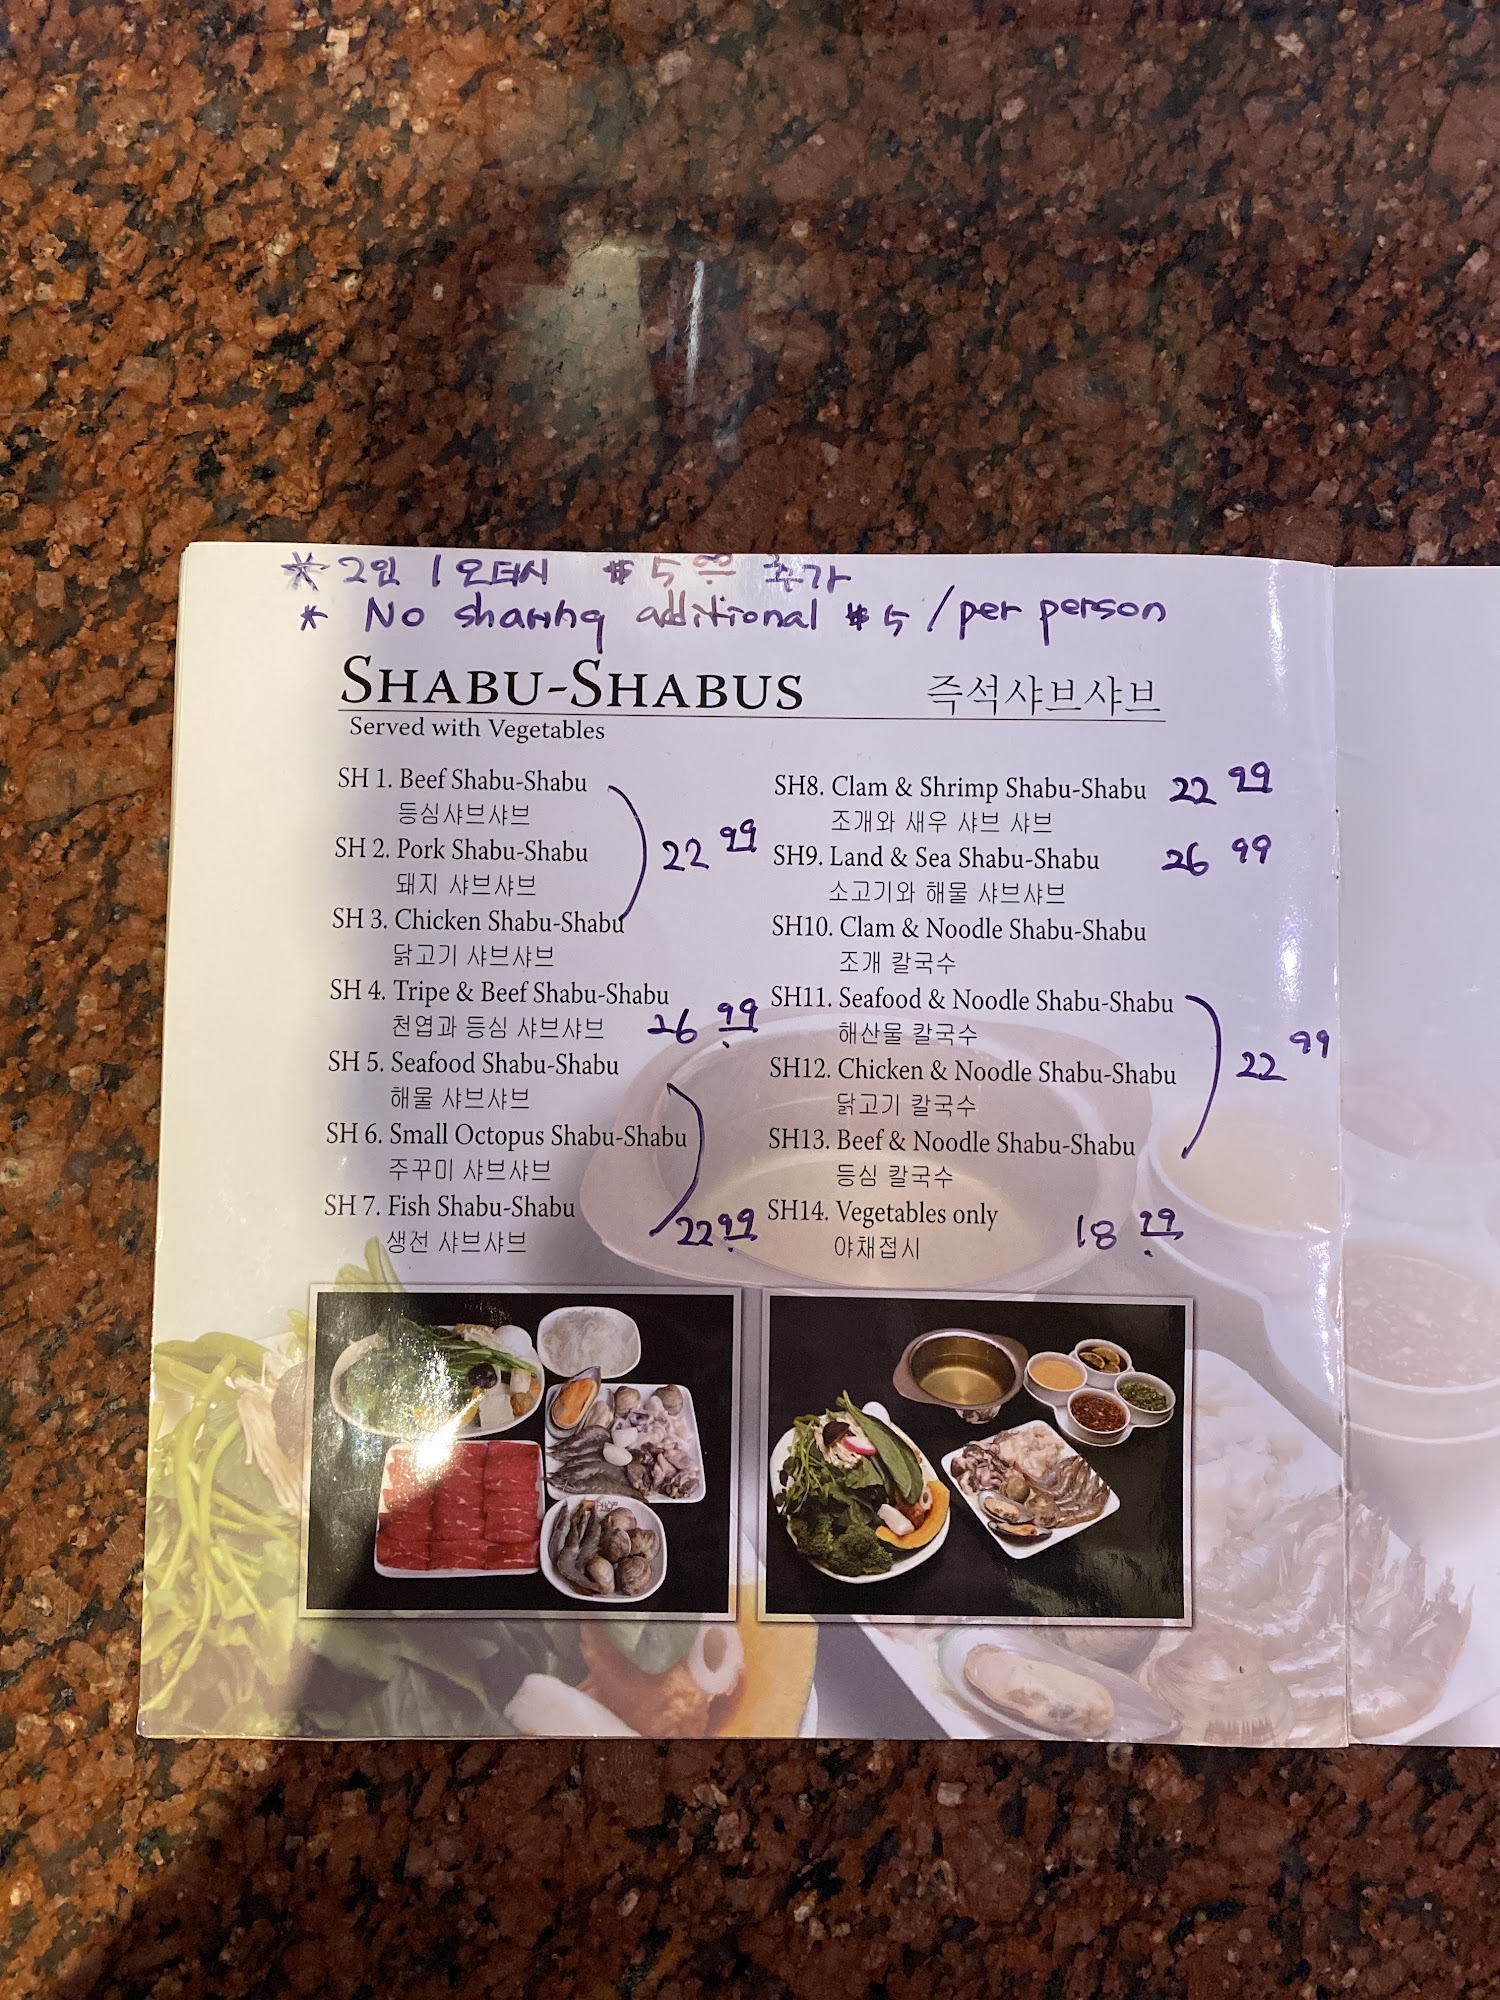 * 2인 1오더시 $5.00 추가
* No sharing additional $5/per person
SHABU-SHABUS 즉석샤브샤브
Served with Vegetables
SH 1. Beef Shabu-Shabu
등심샤브샤브
SH 2. Pork Shabu-Shabu 22 99
돼지 샤브샤브
SH 3. Chicken Shabu-Shabu
닭고기 샤브샤브
SH 4. Tripe & Beef Shabu-Shabu
천엽과 등심 샤브샤브 26 99
SH 5. Seafood Shabu-Shabu
해물 샤브샤브
SH 6. Small Octopus Shabu-Shabu
주꾸미 샤브샤브
SH 7. Fish Shabu-Shabu 22 99
생선 샤브샤브
SH8. Clam & Shrimp Shabu-Shabu 22 99
조개와 새우 샤브 샤브
SH9. Land & Sea Shabu-Shabu 26 99
소고기와 해물 샤브샤브
SH10. Clam & Noodle Shabu-Shabu
조개 칼국수
SH11. Seafood & Noodle Shabu-Shabu
해산물 칼국수
SH12. Chicken & Noodle Shabu-Shabu 22 99
닭고기 칼국수
SH13. Beef & Noodle Shabu-Shabu
등심 칼국수
SH14. Vegetables only 18 99
야채접시